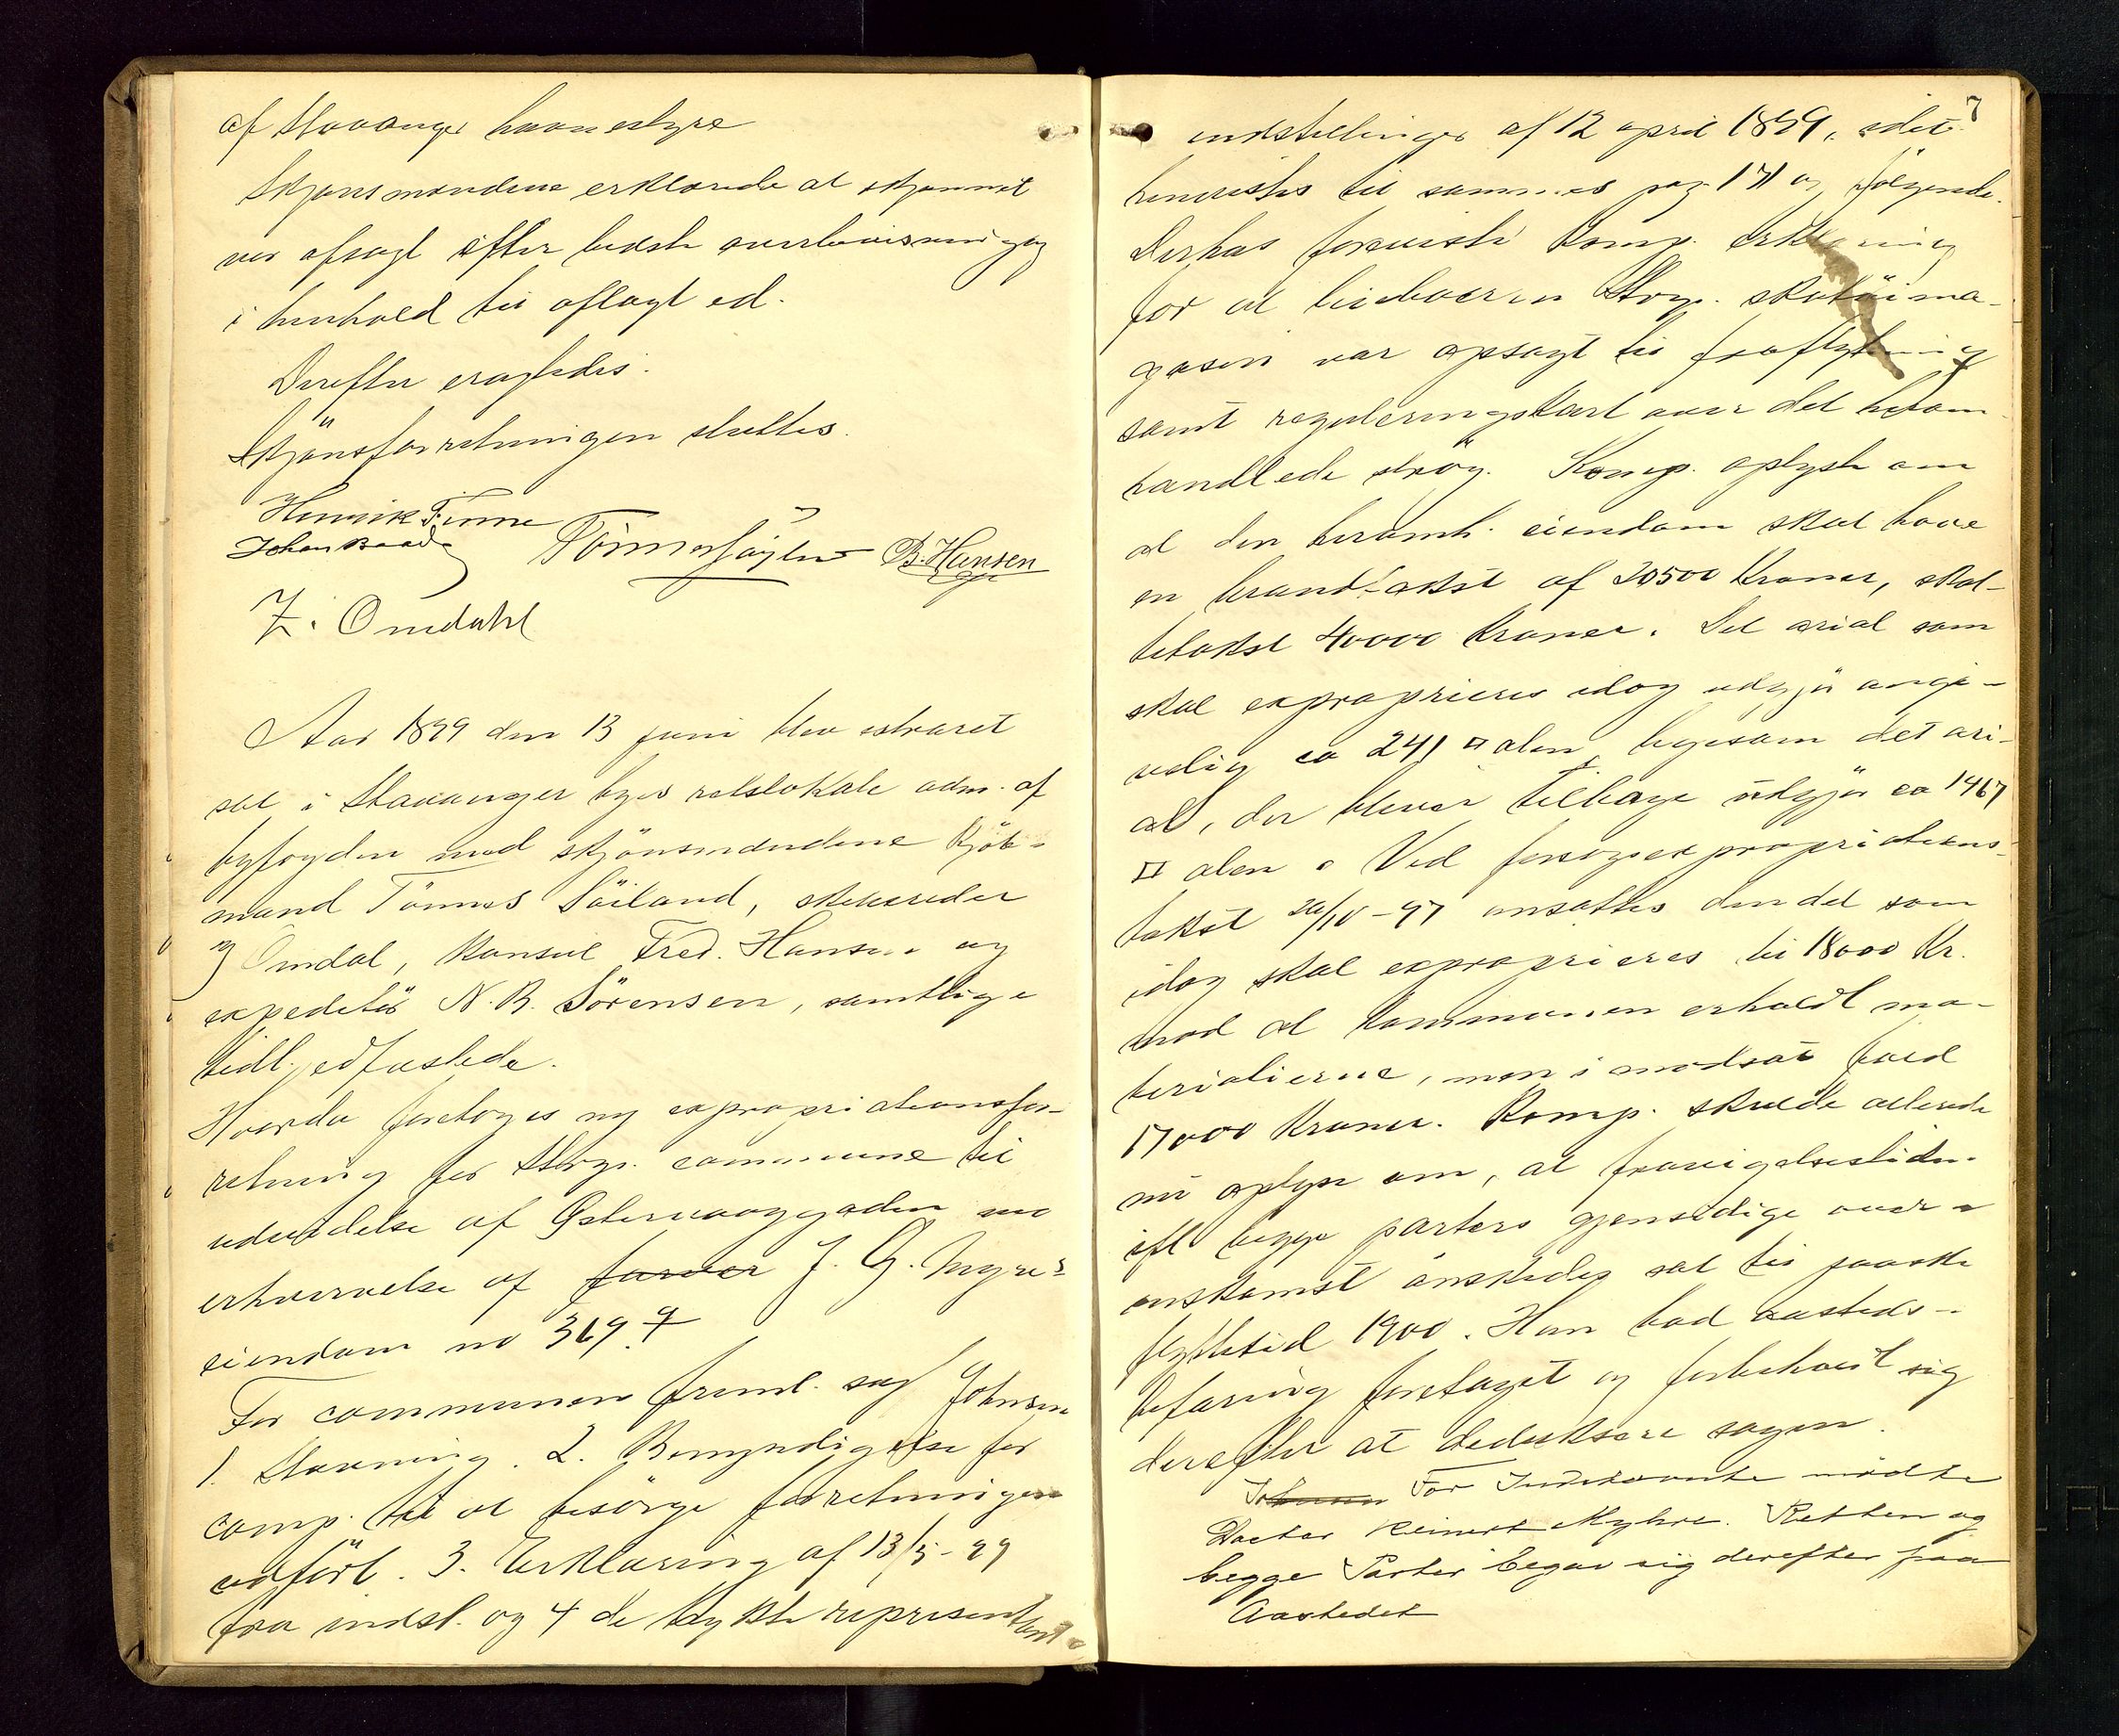 af Stavanger havnestyre
Skjønsmændene erklærede at skjønnet
var afsagt efter bedste overbevisning og
i henhold til aflagt ed.
Derefter eragtedes:
Skjönsforretningen sluttes.
Henrik Finne
Johan Baade Tönnes Söyland B. Hansen
Z. Omdahl
Aar 1899 den 13 juni blev extraret
sat i Stavanger byes retslokale adm. af
byfogden med skjönsmændene kjöb-
mand Tönnes Söiland, skibsreder
Z Omdal, konsul Fred. Hansen og
expeditör N. B. Sörensen, samtlige
tidl. edfæstede.
Hvorda foretoges ny expropriationsfor-
retning for Stvgr. commune til
udvidelse af Østervaaggaden ved
erhvervelse af farver J. G. Myres
eiendom no 369.
For communen freml. sagf Johnsen
1. Stævning. 2. Bemyndigelse for
comp. til at besörge forretningen
udfört. 3. Erklæring af 13/5-99
fra indst. og 4 de trykte representant-
7
indstillinger af 12 april 1899, idet
henvistes til sammes pag. 171 og fölgende.
Derhos foreviste komp. erklæring
for at leieboeren Stvgr. skotöima-
gasin var opsagt til fraflytning
samt reguleringskart over det heromhandlede
strög. Komp. oplyste om
at den heromh. eiendom skal have
en brandtakst af 20500 kroner, skat-
tetakst 40000 kroner. Det areal som
skal exproprieres idag udgjör angi-
velig ca 241 □ alen, ligesom det are-
al, der bliver tilbage udgjör ca 1467
□ alen. Ved forsögsexpropriations-
takst 20/10-97 ansattes den del som
idag skal exproprieres til 18000 Kr.
mod at kommunen erholdt ma-
terialierne, men i modsat fald
17000 kroner. Komp. skulde allerede
nu oplyse om, at fravigelsestiden
eft begge parters gjensidige over-
enskomst önskedes sat til paaske
flyttetid 1900. Han bad aasteds-
befaring foretaget og forbeholdt sig
derefter at deduksere sagen.
Johnsen For Indstevnte mödte
Doctor Reinert Myhre. Retten og
begge Parter begav sig derefter paa
Aastedet